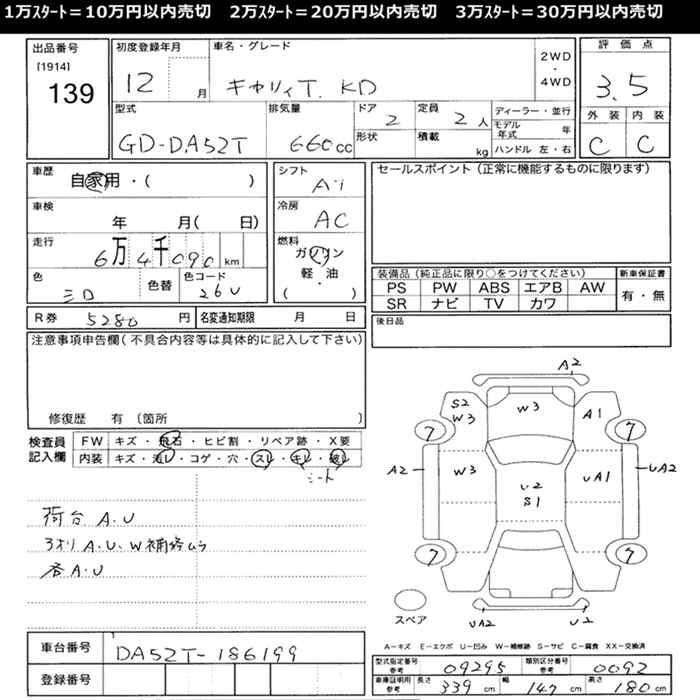 1万ｽﾀｰﾄ＝10万円以内売切 2万ｽﾀｰﾄ＝20万円以内売切 3万ｽﾀｰﾄ＝30万円以内売切
出品番号
[1914]
139
初度登録年月
12 月
車名・グレード
キャリィT. KD
2WD
・
4WD
評価点
3.5
型式
GD-DA52T
排気量
660cc
ドア 2
形状
定員 2人
積載 kg
ディーラー・並行
モデル年式 年
ハンドル 左・右
外装 内装
C C
車歴
自家用・( )
車検
年 月( 日)
走行
6万4千090km
色
シロ
色替
色コード
26U
シフト
冷房
AC
燃料
ガソリン
軽・油
( )
セールスポイント (正常に機能するものに限ります)
装備品 (純正品に限り○をつけてください)
PS PW ABS エアB AW
SR ナビ TV カワ
新車保証書
有・無
R券 5280 円
名変通知期限 月 日
後日品
注意事項申告欄(不具合内容等は具体的に記入して下さい)
修復歴 有 〔箇所 〕
検査員
記入欄
FW キズ・飛石・ヒビ割・リペア跡・X要
内装 キズ・汚レ・コゲ・穴・スレ・キレ・破レ
シート
荷台 A.U
3オリ A.U、W補修ムラ
各A.U
A2
S2
W3
W3
A1
7
7
A2
W3
U2
S1
UA1
UA2
7
7
スペア
UA2
U2
A－キズ E－エクボ U－凹み W－補修跡 S－サビ C－腐食 XX－交換済
車台番号
DA52T-186199
登録番号
型式指定番号
参考
09295
類別区分番号
参考
0092
車庫証明用
参考
長さ 339 cm 幅 147 cm 高さ 180 cm